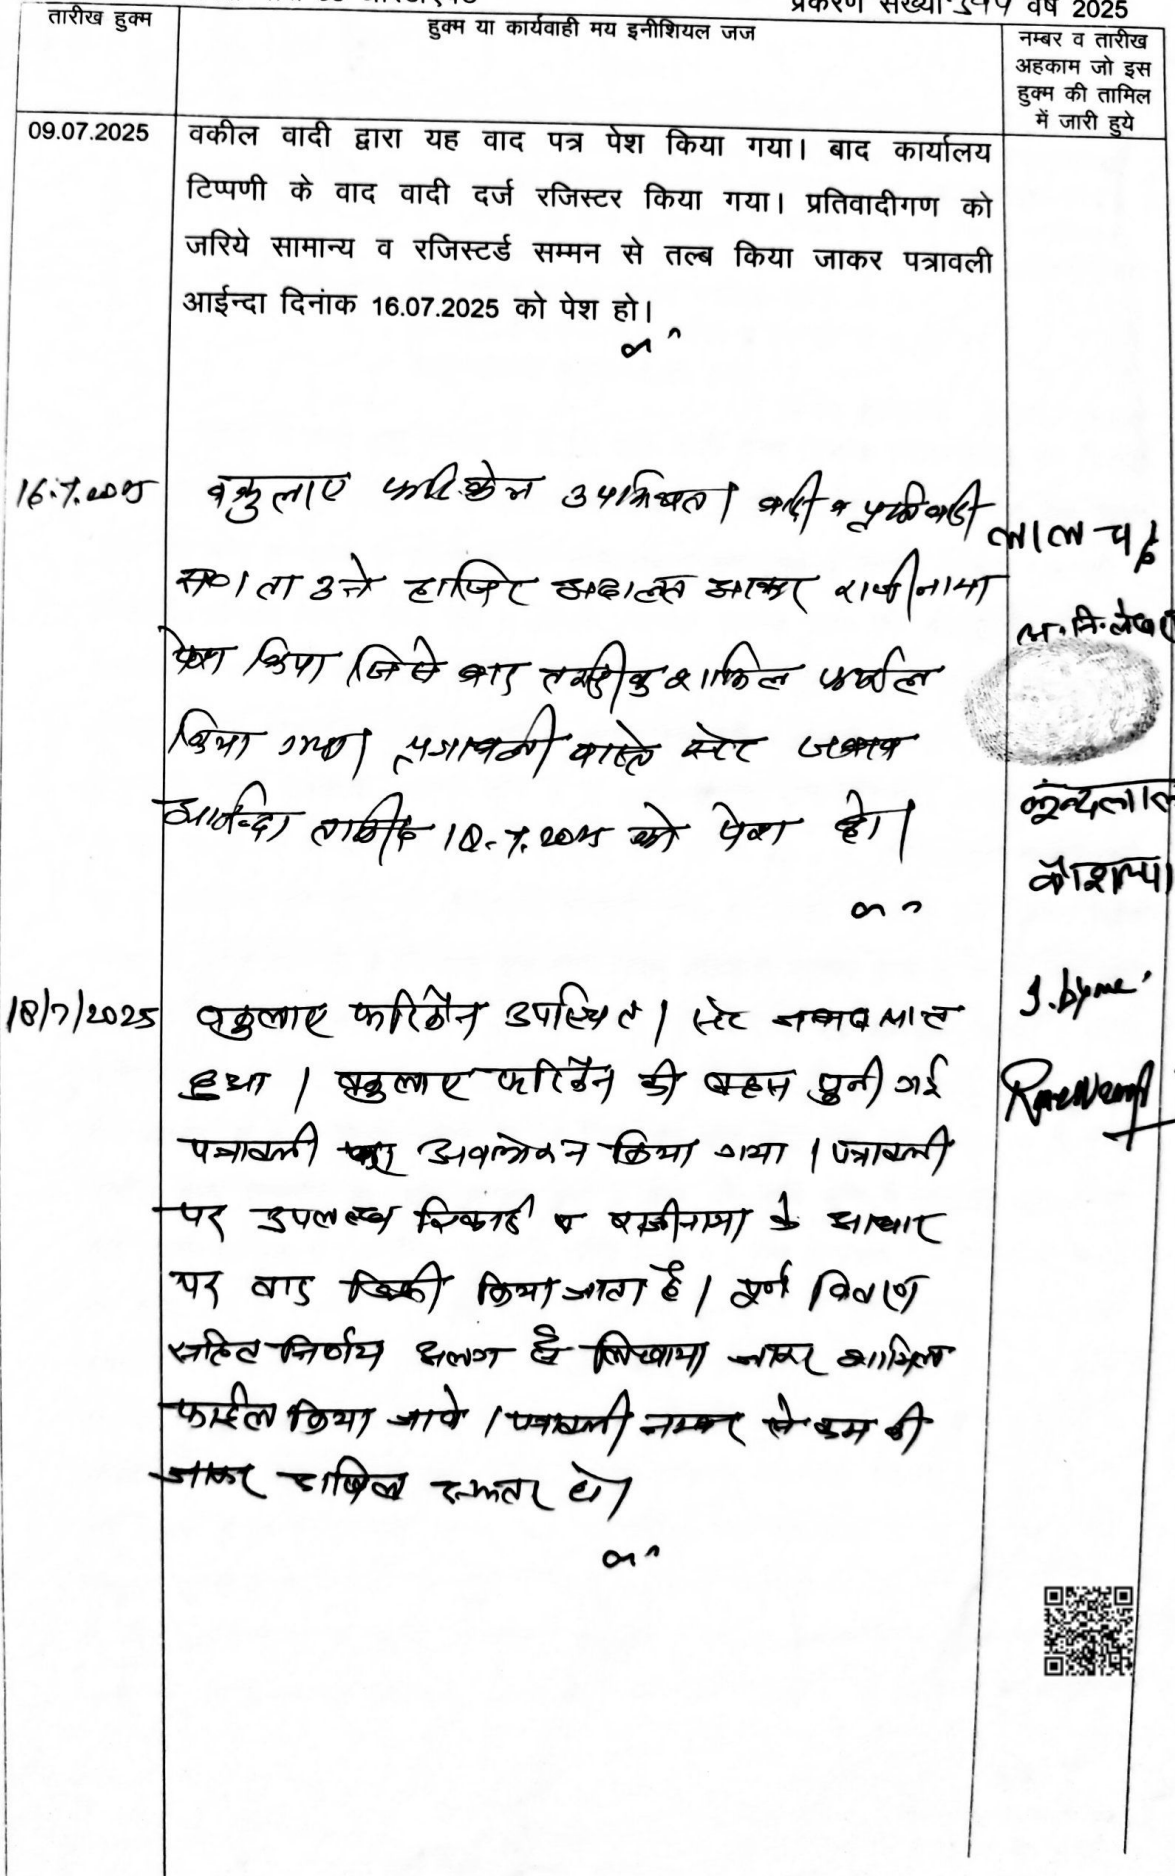 प्रकरण संख्या वर्ष 2025
तारीख हुक्म
हुक्म या कार्यवाही मय इनीशियल जज
नम्बर व तारीख
अहकाम जो इस
हुक्म की तामिल
में जारी हुये
09.07.2025
वकील वादी द्वारा यह वाद पत्र पेश किया गया। बाद कार्यालय
टिप्पणी के वाद वादी दर्ज रजिस्टर किया गया। प्रतिवादीगण को
जरिये सामान्य व रजिस्टर्ड सम्मन से तल्ब किया जाकर पत्रावली
आईन्दा दिनांक 16.07.2025 को पेश हो।
16.7.2025
वकुलाए फरिकेन उपस्थित। वादी व प्रतिवादी
हाजिर अदालत आकर राजीनामा
पेश किया जिसे बाद तस्दीक शामिल फाईल
किया गया। पत्रावली वास्ते स्टेट जवाब
आईन्दा तारीख 18.7.2025 को पेश हो।
लाल चंद
कौशल्या
18/7/2025
वकुलाए फरिकैन उपस्थित। स्टेट जवाब प्राप्त
हुआ। वकुलाए फरिकैन की बहस सुनी गई
पत्रावली का अवलोकन किया गया। पत्रावली
पर उपलब्ध रिकार्ड व राजीनामा के आधार
पर वाद डिक्री किया जाता है। पूर्ण विवरण
सहित निर्णय अलग से लिखाया जाकर शामिल
फाईल किया जावे। पत्रावली नम्बर से कम की
जाकर दाखिल दफ्तर हो।